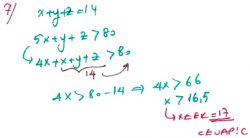 7/
x+y+z=14
5x+y+z>80
4x+x+y+z>80
14
4x>80-14 ⇒ 4x>66
x>16,5
x EEK=17
CEVAP:C